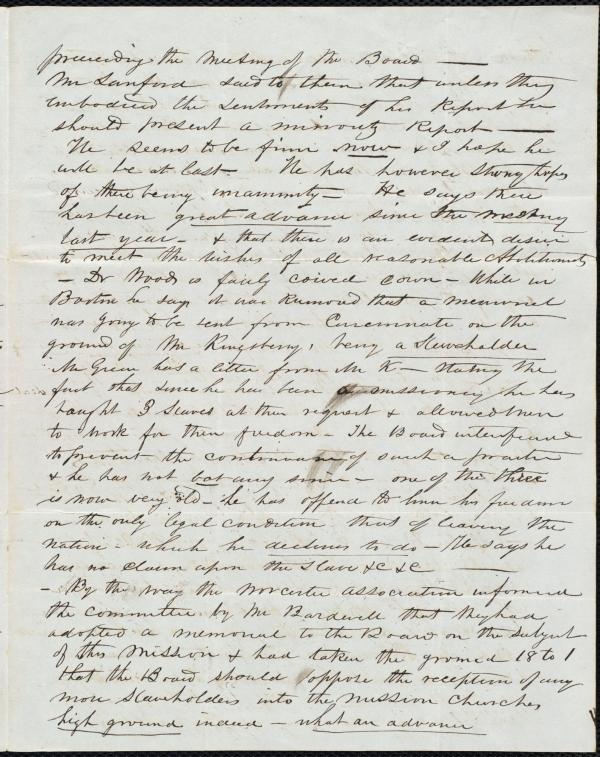 preceeding the meeting of the Board —
Mr Sanford said to them that unless they
embodied the sentiments of his Report he
should present a minority Report —
He seems to be firm now & I hope he
will be at last — He has however strong hopes
of there being unanimity — He says there
has been great advance since the meeting
last year — & that there is an evident desire
to meet the wishes of all reasonable Abolitionists
— Dr Woods is fairly cowed down — While in
Boston he says it was Rumoured that a memorial
was going to be sent from Cincinnati on the
ground of Mr Kingsbury, being a Slaveholder
Mr Green has a letter from Mr K — stating the
fact that since he has been a missionary he has
bought 3 Slaves at their request & allowed them
to work for their freedom — The Board interfered
to prevent the continuance of such a practice
& he has not bot any since — one of the three
is now very old — he has offered to him his freedom
on the only legal condition that of leaving the
nation — which he declines to do — He says he
has no claim upon the Slave &c &c —
— By the way the Worcester Association informed
the committee by Mr Bardwell that they had
adopted a memorial to the Board on the subject
of this Mission & had taken the ground 18 to 1
that the Board should oppose the reception of any
more Slaveholders into the mission Churches
high ground indeed — what an advance